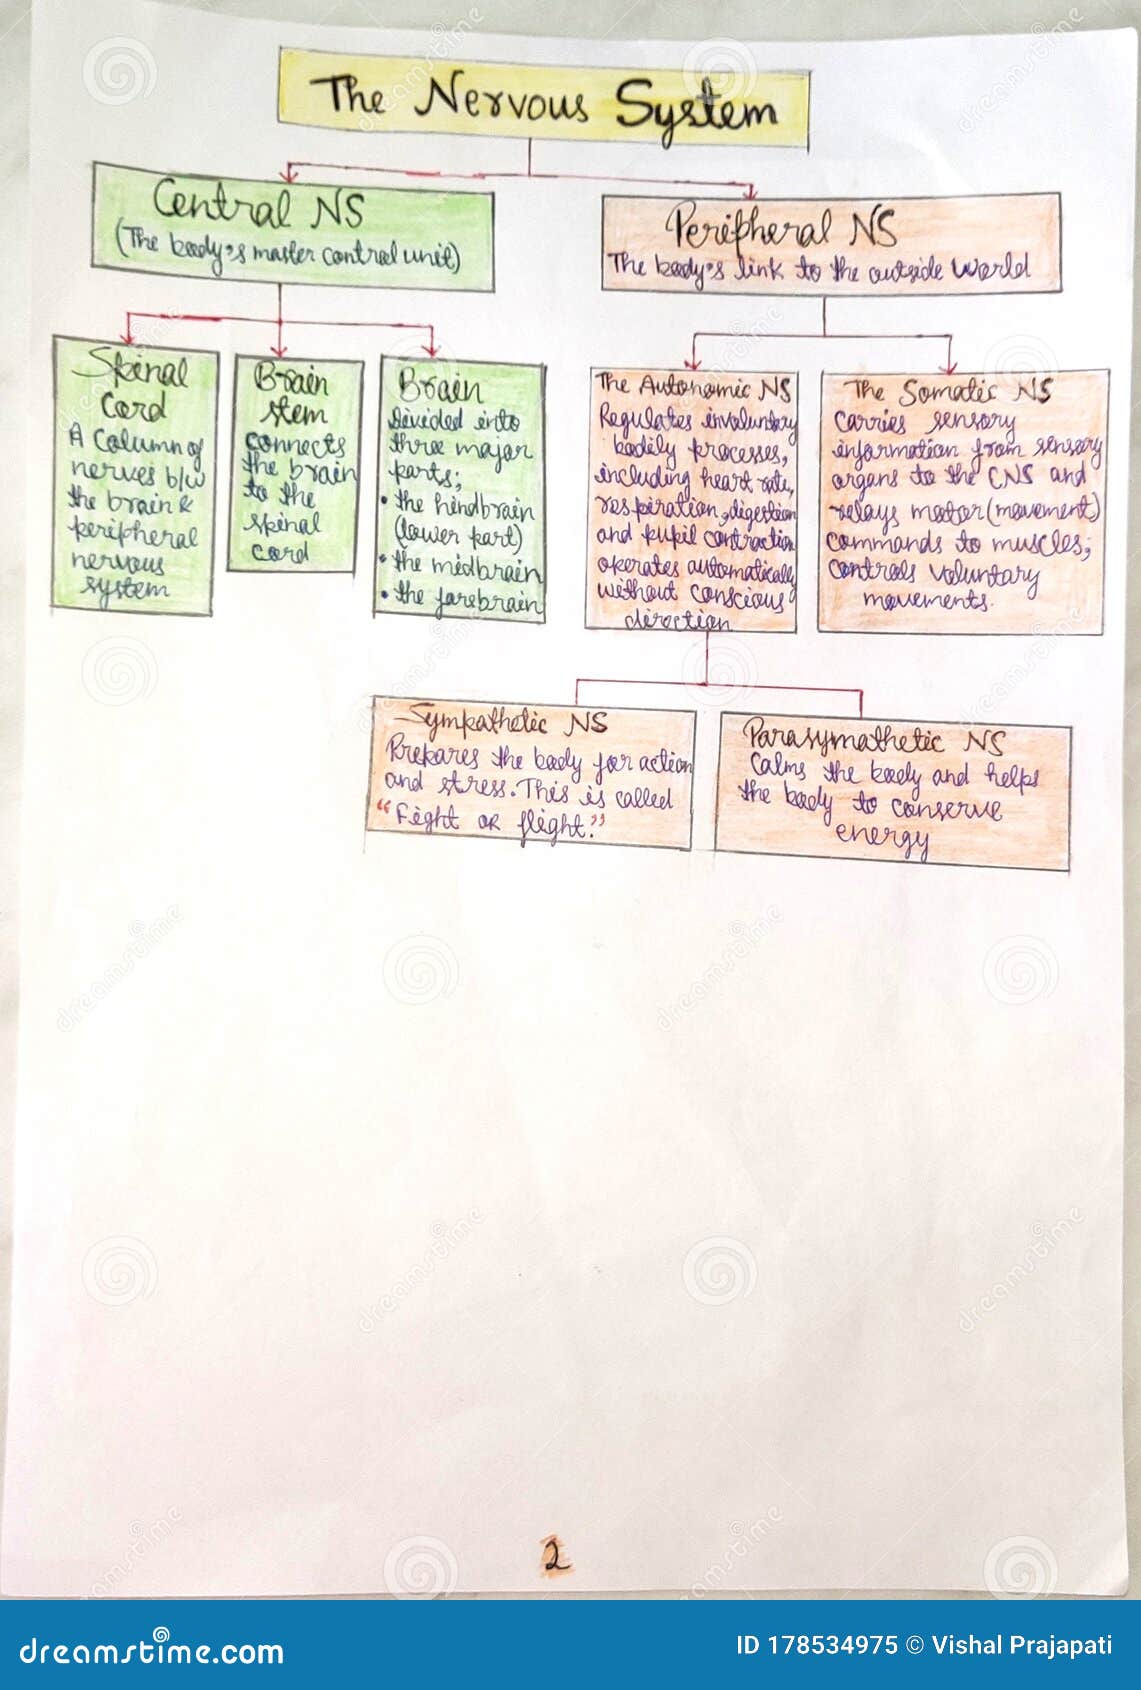 The Nervous System
Central NS
(The body's master control unit)
Peripheral NS
The body's link to the outside World
Spinal
Cord
A Column of
nerves b/w
the brain &
peripheral
nervous
system
Brain
stem
connects
the brain
to the
spinal
cord
Brain
Divided into
three major
parts;
• the hindbrain
(lower part)
• the midbrain
• the forebrain
The Autonomic NS
Regulates involuntary
bodily processes,
including heart rate,
respiration, digestion
and pupil contraction
operates automatically
without conscious
direction
The Somatic NS
Carries sensory
information from sensory
organs to the CNS and
relays motor (movement)
commands to muscles;
controls voluntary
movements.
Sympathetic NS
Prepares the body for action
and stress. This is called
"Fight or flight."
Parasymathetic NS
Calms the body and helps
the body to conserve
energy
2
dreamstime.com
ID 178534975 © Vishal Prajapati